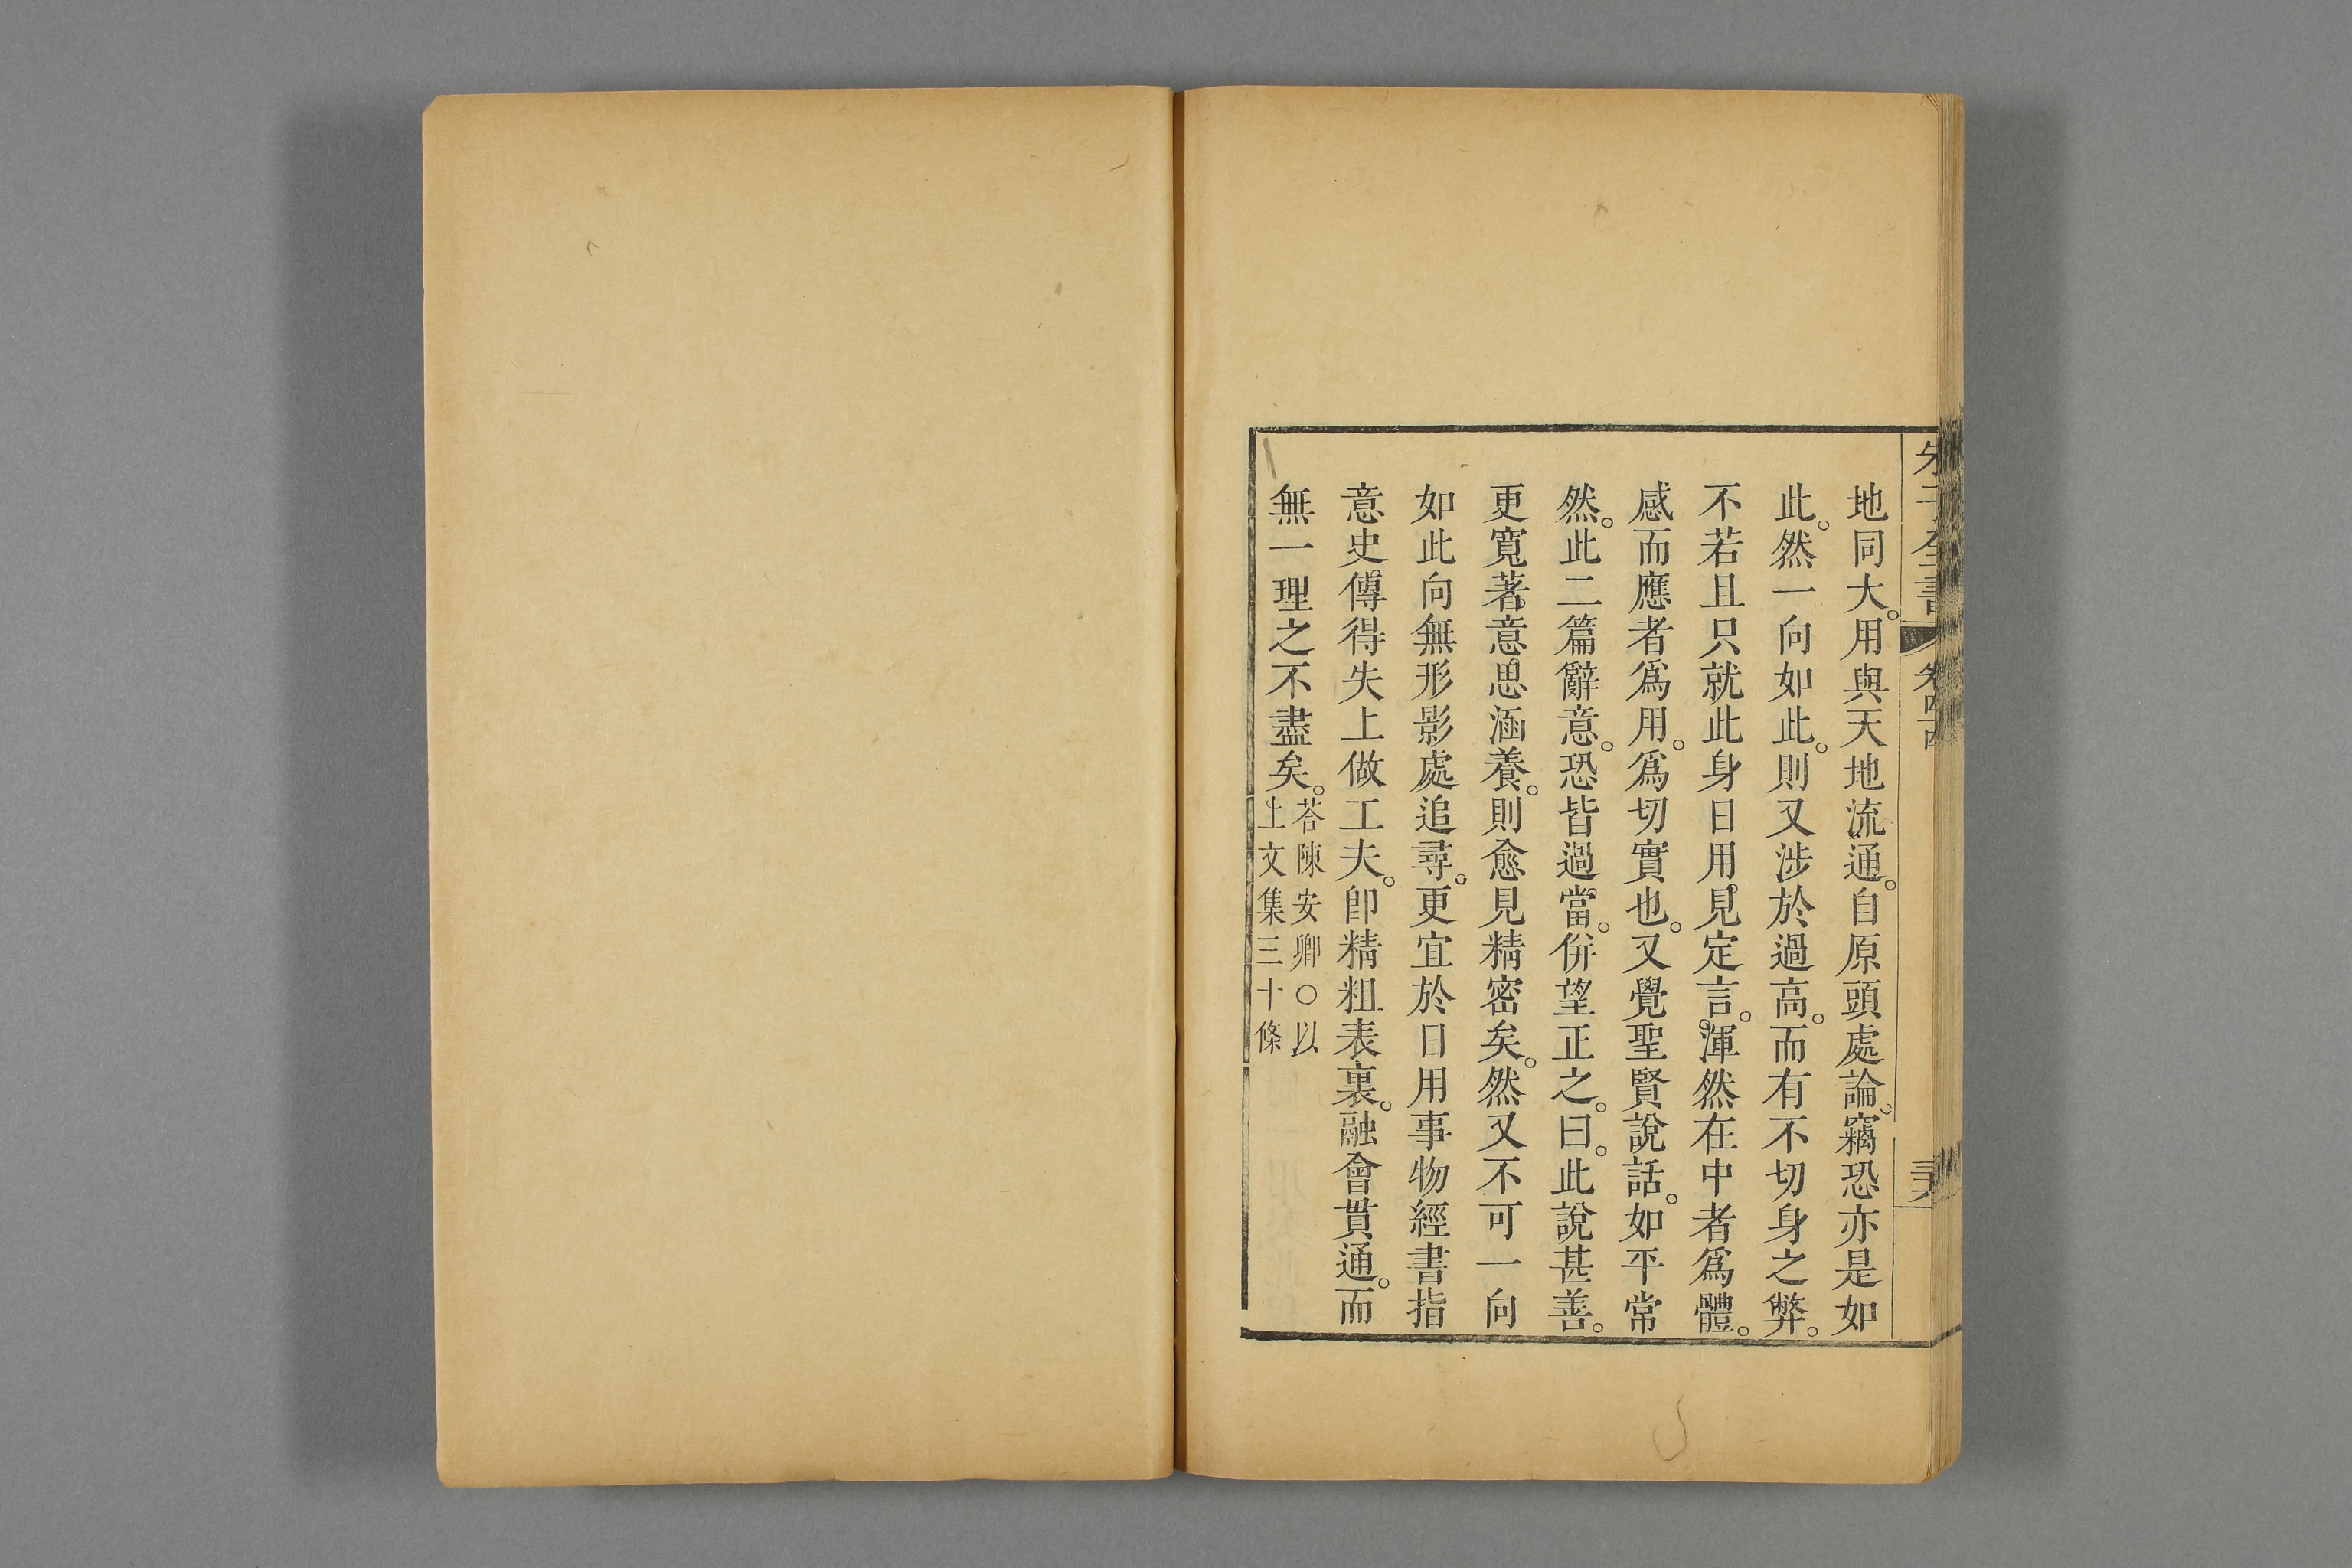 朱子全書 卷四十四
三六
地同大。用與天地流通。自原頭處論。竊恐亦是如
此。然一向如此。則又涉於過高。而有不切身之弊。
不若且只就此身日用見定言。渾然在中者爲體。
感而應者爲用。爲切實也。又覺聖賢說話。如平常
然。此二篇辭意。恐皆過當。併望正之。曰。此說甚善。
更寬著意思涵養。則愈見精密矣。然又不可一向
如此向無形影處追尋。更宜於日用事物經書指
意史傳得失上做工夫。卽精粗表裏。融會貫通。而
無一理之不盡矣。
荅陳安卿○以
上文集三十條